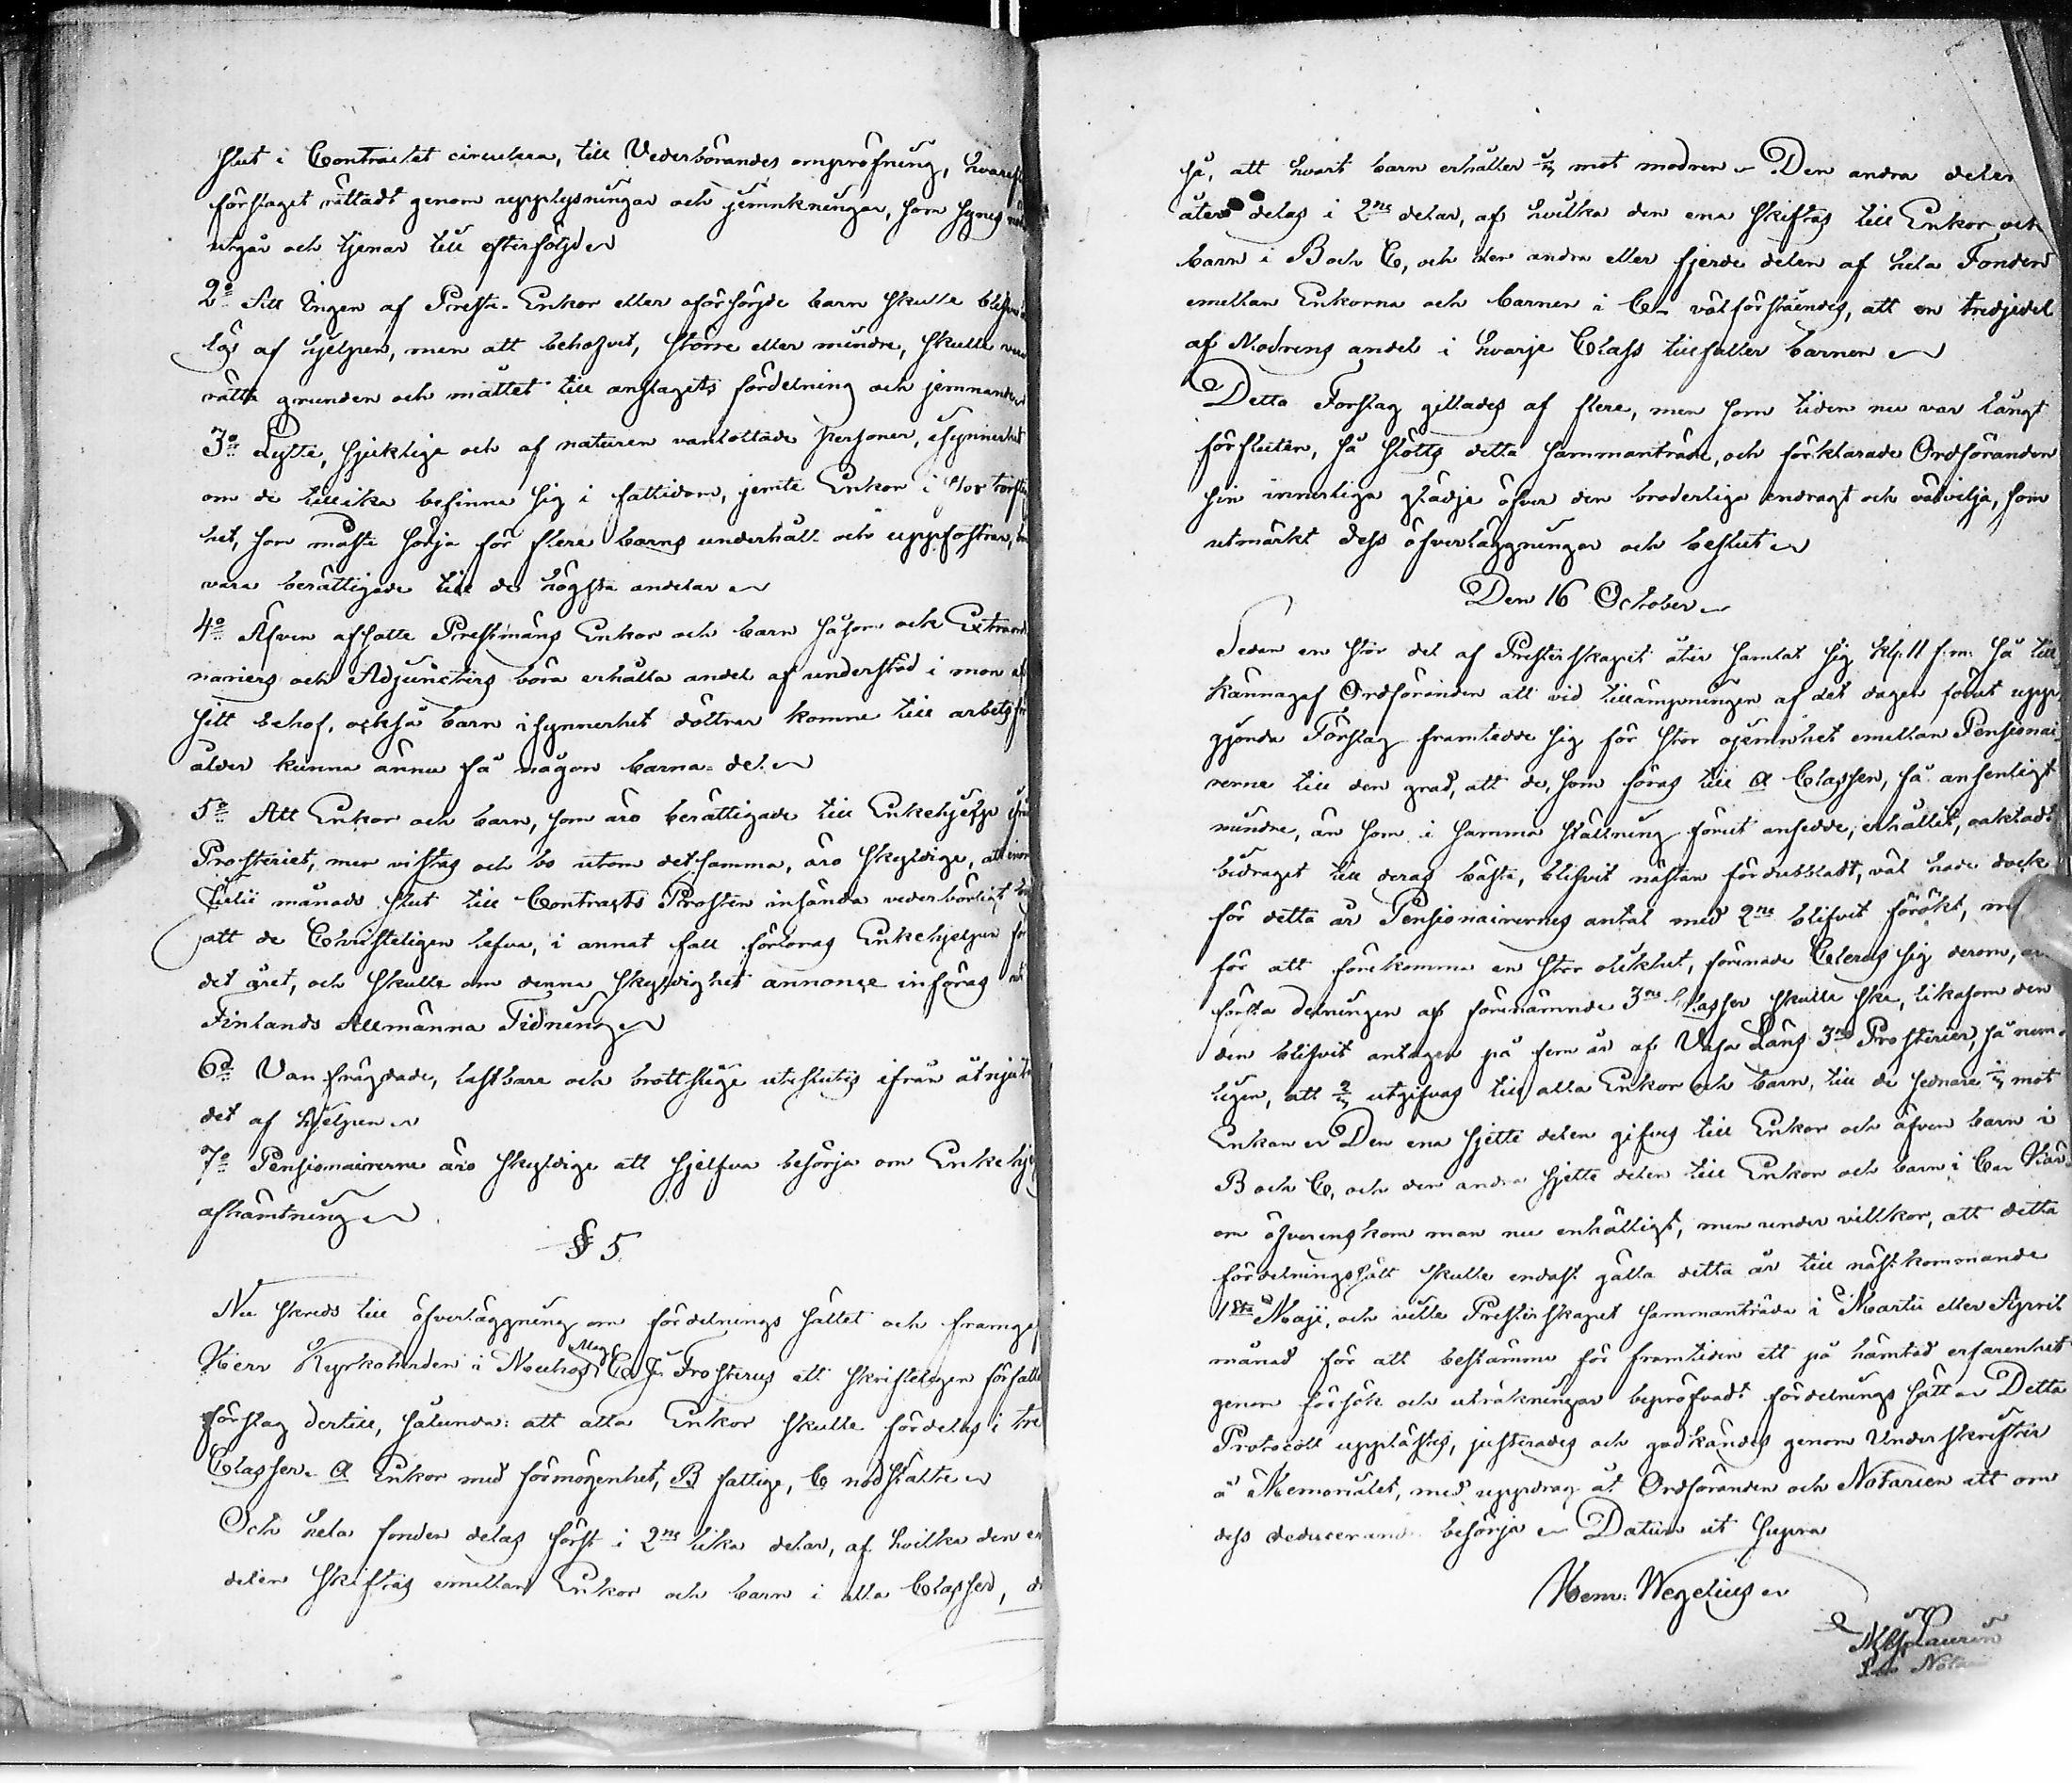 slut i Contractet circulera, till Vederbörandes ompröfning,
förslaget rättadt genom upplysningar och jemnkningar, som synes
utgår och tjenar till efterföljd
2o Att Ingen af Prest-Enkor eller oförsörjde barn skulle blifva
lös af hjelpen, men att behofvet, större eller mindre, skulle vara
rätta grunden och måttet till anslagets fördelning och jemnande
3o Lytte, sjuklige och af naturen vanlottade personer, isynnerhet
om de tillika befinna sig i fattidom, jemte Enkor i stor torftig
het, som måste sörja för flere barns underhåll och uppfostran,
vara berättigade till de högsta andelar
4o Äfven afsatte Prestmäns Enkor och barn såsom ock Extraordi
nariers och Adjuncters böra erhålla andel af understöd i mon af
sitt behof, också barn isynnerhet döttrar komne till arbetsför
ålder kunna ännu få någon barna-del
5o Att Enkor och barn, som äro berättigade till Enkehjelp ifrån
Prosteriet, men vistas och bo utom detsamma, äro skyldige, att inom
Julii månads slut till Contracts Prosten insända vederbörligt
att de Christeligen lefva, i annat fall förloras Enkehjelpen för
det året, och skulle om denna skyldighet annonce införas uti
Finlands Allmänna Tidning
6o Vanfrägdade, lastbare och brottslige uteslutes ifrån åtnjutan
det af hjelpen
7o Pensionairerne äro skyldige att sjelfva besörja om Enkehjelps
afhämtning
§ 5
Nu skreds till öfverläggning om fördelnings sättet och framgaf
Herr Kyrkoherden i Neuhof Mag. C. J. Frosterus ett skrifteligen författadt
förslag dertill, sålunda: att alla Enkor skulle fördelas i tre
Classer. A Enkor med förmögenhet, B fattige, C nödstälte
Och hela fonden delas först i 2ne lika delar, af hvilka den ena
delen skiftas emellan Enkor och barn i alla Classer,
så, att hvart barn erhåller 1/3 mot modren. Den andra delen
åter delas i 2ne delar, af hvilka den ena skiftas till Enkor och
barn i B och C, och den andra eller fjerde delen af hela Fonden
emellan Enkorna och barnen i C. välförståendes, att en tredjedel
af Modrens andel i hvarje Class tillfaller barnen
Detta Förslag gillades af flere, men som tiden nu var långt
förfluten, så slöts detta sammanträde, och förklarade Ordföranden
sin innerliga glädje öfver den broderliga endrägt och välvilja, som
utmärkt dess öfverläggningar och beslut
Den 16 October
Sedan en stor del af Presterskapet åter samlat sig kl. 11 f.m. så till-
kännagaf Ordföranden att vid tillämpningen af det dagen förut upp-
gjorda Förslag framtedde sig för stor ojemnhet emellan Pensionai-
rerne till den grad, att de, som föras till A Classen, få ansenligt
mindre, än som i samma ställning förut ansedde, erhållit, oaktadt
bidraget till deras bästa, blifvit nästan fördubbladt, väl hade dock
för detta år Pensionairernes antal med 2ne blifvit förökt,
för att förekomma en stor olikhet, förenade Clerus sig derom, att
första delningen af förenämnde 3ne Classer skulle ske, likasom den
den blifvit antagen på fem år af Vasa Läns 3ne Prosterier, så nem-
ligen, att 2/3 utgifvas till alla Enkor och barn, till de sednare 1/3 mot
Enkan. Den ena sjette delen gifves till Enkor och äfven barn i
B och C, och den andra sjette delen till Enkor och barn i C. Här-
om öfverenskom man nu enhälligt, men under villkor, att detta
fördelningssätt skulle endast gälla detta år till nästkommande
1sta Maji, och ville Presterskapet sammanträda i Martii eller April
månad för att bestämma för framtiden ett på hämtad erfarenhet
genom försök och uträkningar bepröfvadt fördelnings sätt. Detta
Protocoll upplästes, justerades och godkändes genom Underskrifter
å Memorialet, med uppdrag åt Ordföranden och Notarien att om
dess deducerande besörja. Datum ut supra
Henr: Wegelius
Laurin